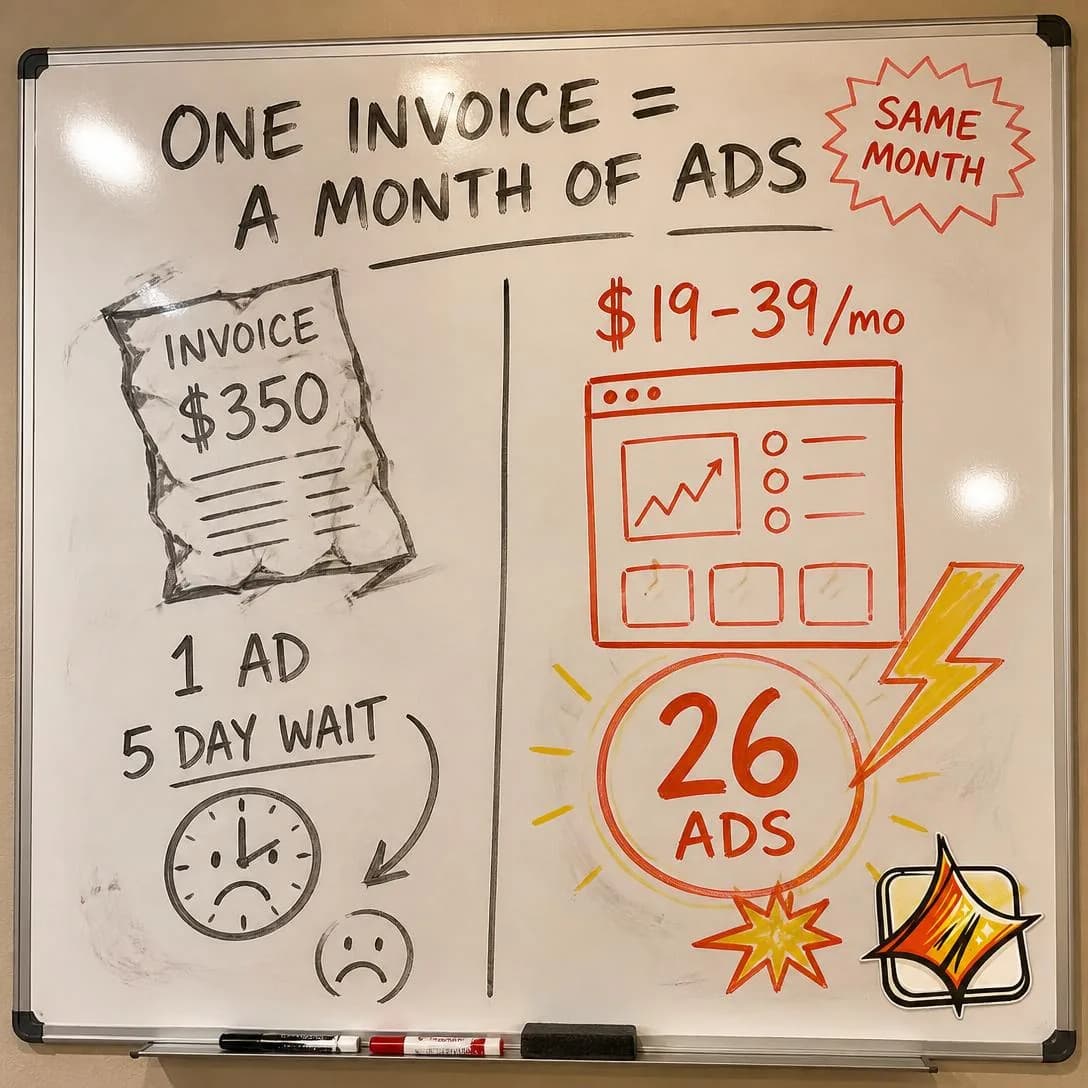 ONE INVOICE =
A MONTH OF ADS
SAME
MONTH
INVOICE
$350
1 AD
5 DAY WAIT
$19-39/mo
26
ADS